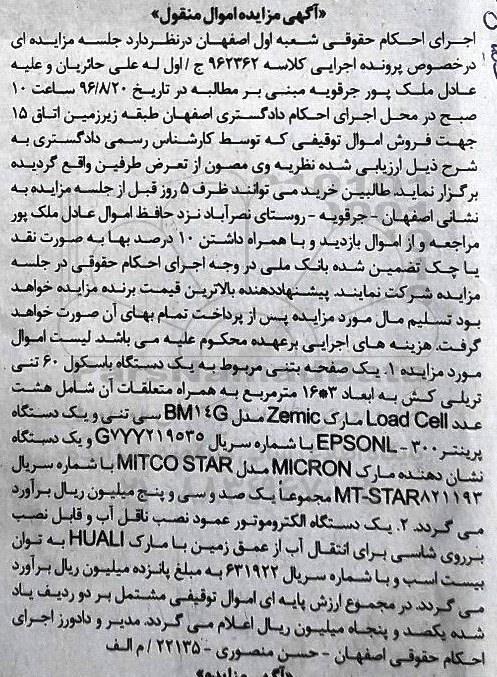 «آگهی مزایده اموال منقول»
اجرای احکام حقوقی شعبه اول اصفهان در نظر دارد جلسه مزایده ای
در خصوص پرونده اجرایی کلاسه ۹۶۲۳۶۲ ج / اول له علی حائریان و علیه
عادل ملک پور جرقویه مبنی بر مطالبه در تاریخ ۹۶/۸/۲۰ ساعت ۱۰
صبح در محل اجرای احکام دادگستری اصفهان طبقه زیرزمین اتاق ۱۵
جهت فروش اموال توقیفی که توسط کارشناس رسمی دادگستری به
شرح ذیل ارزیابی شده نظریه وی مصون از تعرض طرفین واقع گردیده
برگزار نماید. طالبین خرید می توانند ظرف ۵ روز قبل از جلسه مزایده به
نشانی اصفهان - جرقویه - روستای نصرآباد نزد حافظ اموال عادل ملک پور
مراجعه و از اموال بازدید و با همراه داشتن ۱۰ درصد بها به صورت نقد
یا چک تضمین شده بانک ملی در وجه اجرای احکام حقوقی در جلسه
مزایده شرکت نمایند. پیشنهاددهنده بالاترین قیمت برنده مزایده خواهد
بود تسلیم مال مورد مزایده پس از پرداخت تمام بهای آن صورت خواهد
گرفت. هزینه های اجرایی برعهده محکوم علیه می باشد. لیست اموال
مورد مزایده ۱. یک صفحه بتنی مربوط به یک دستگاه باسکول ۶۰ تنی
تریلی کش به ابعاد ۳*۱۶ مترمربع به همراه متعلقات آن شامل هشت
عدد Load Cell مارک Zemic مدل BM۱٤G سی تنی و یک دستگاه
پرینتر EPSONL - ۳۰۰ با شماره سریال G۷۷۷۲۱۹۵۳۵ و یک دستگاه
نشان دهنده مارک MICRON مدل MITCO STAR با شماره سریال
MT-STAR۸۲۱۱۹۳ مجموعاً یک صد و سی و پنج میلیون ریال برآورد
می گردد ۲. یک دستگاه الکتروموتور عمود نصب ناقل آب و قابل نصب
برروی شاسی برای انتقال آب از عمق زمین با مارک HUALI به توان
بیست اسب و با شماره سریال ۶۳۱۹۲۲ به مبلغ پانزده میلیون ریال برآورد
می گردد. در مجموع ارزش پایه ای اموال توقیفی مشتمل بر دو ردیف یاد
شده یکصد و پنجاه میلیون ریال اعلام می گردد. مدیر و دادورز اجرای
احکام حقوقی اصفهان - حسن منصوری - ۲۲۱۳۵ / م الف